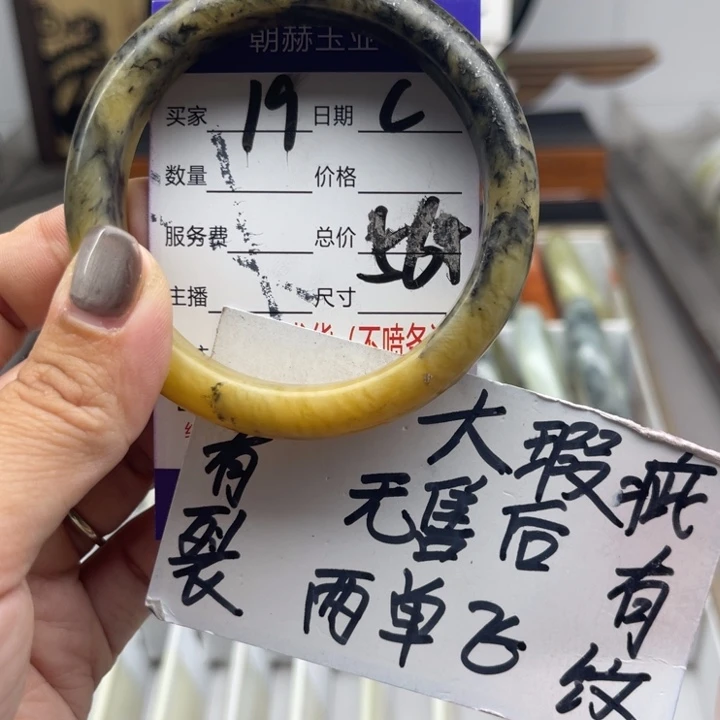 朝赫玉业
买家 19 日期 C
数量 价格
服务费 总价
主播 尺寸
(不喷各
大瑕疵
有裂
无售后
有纹
两单飞